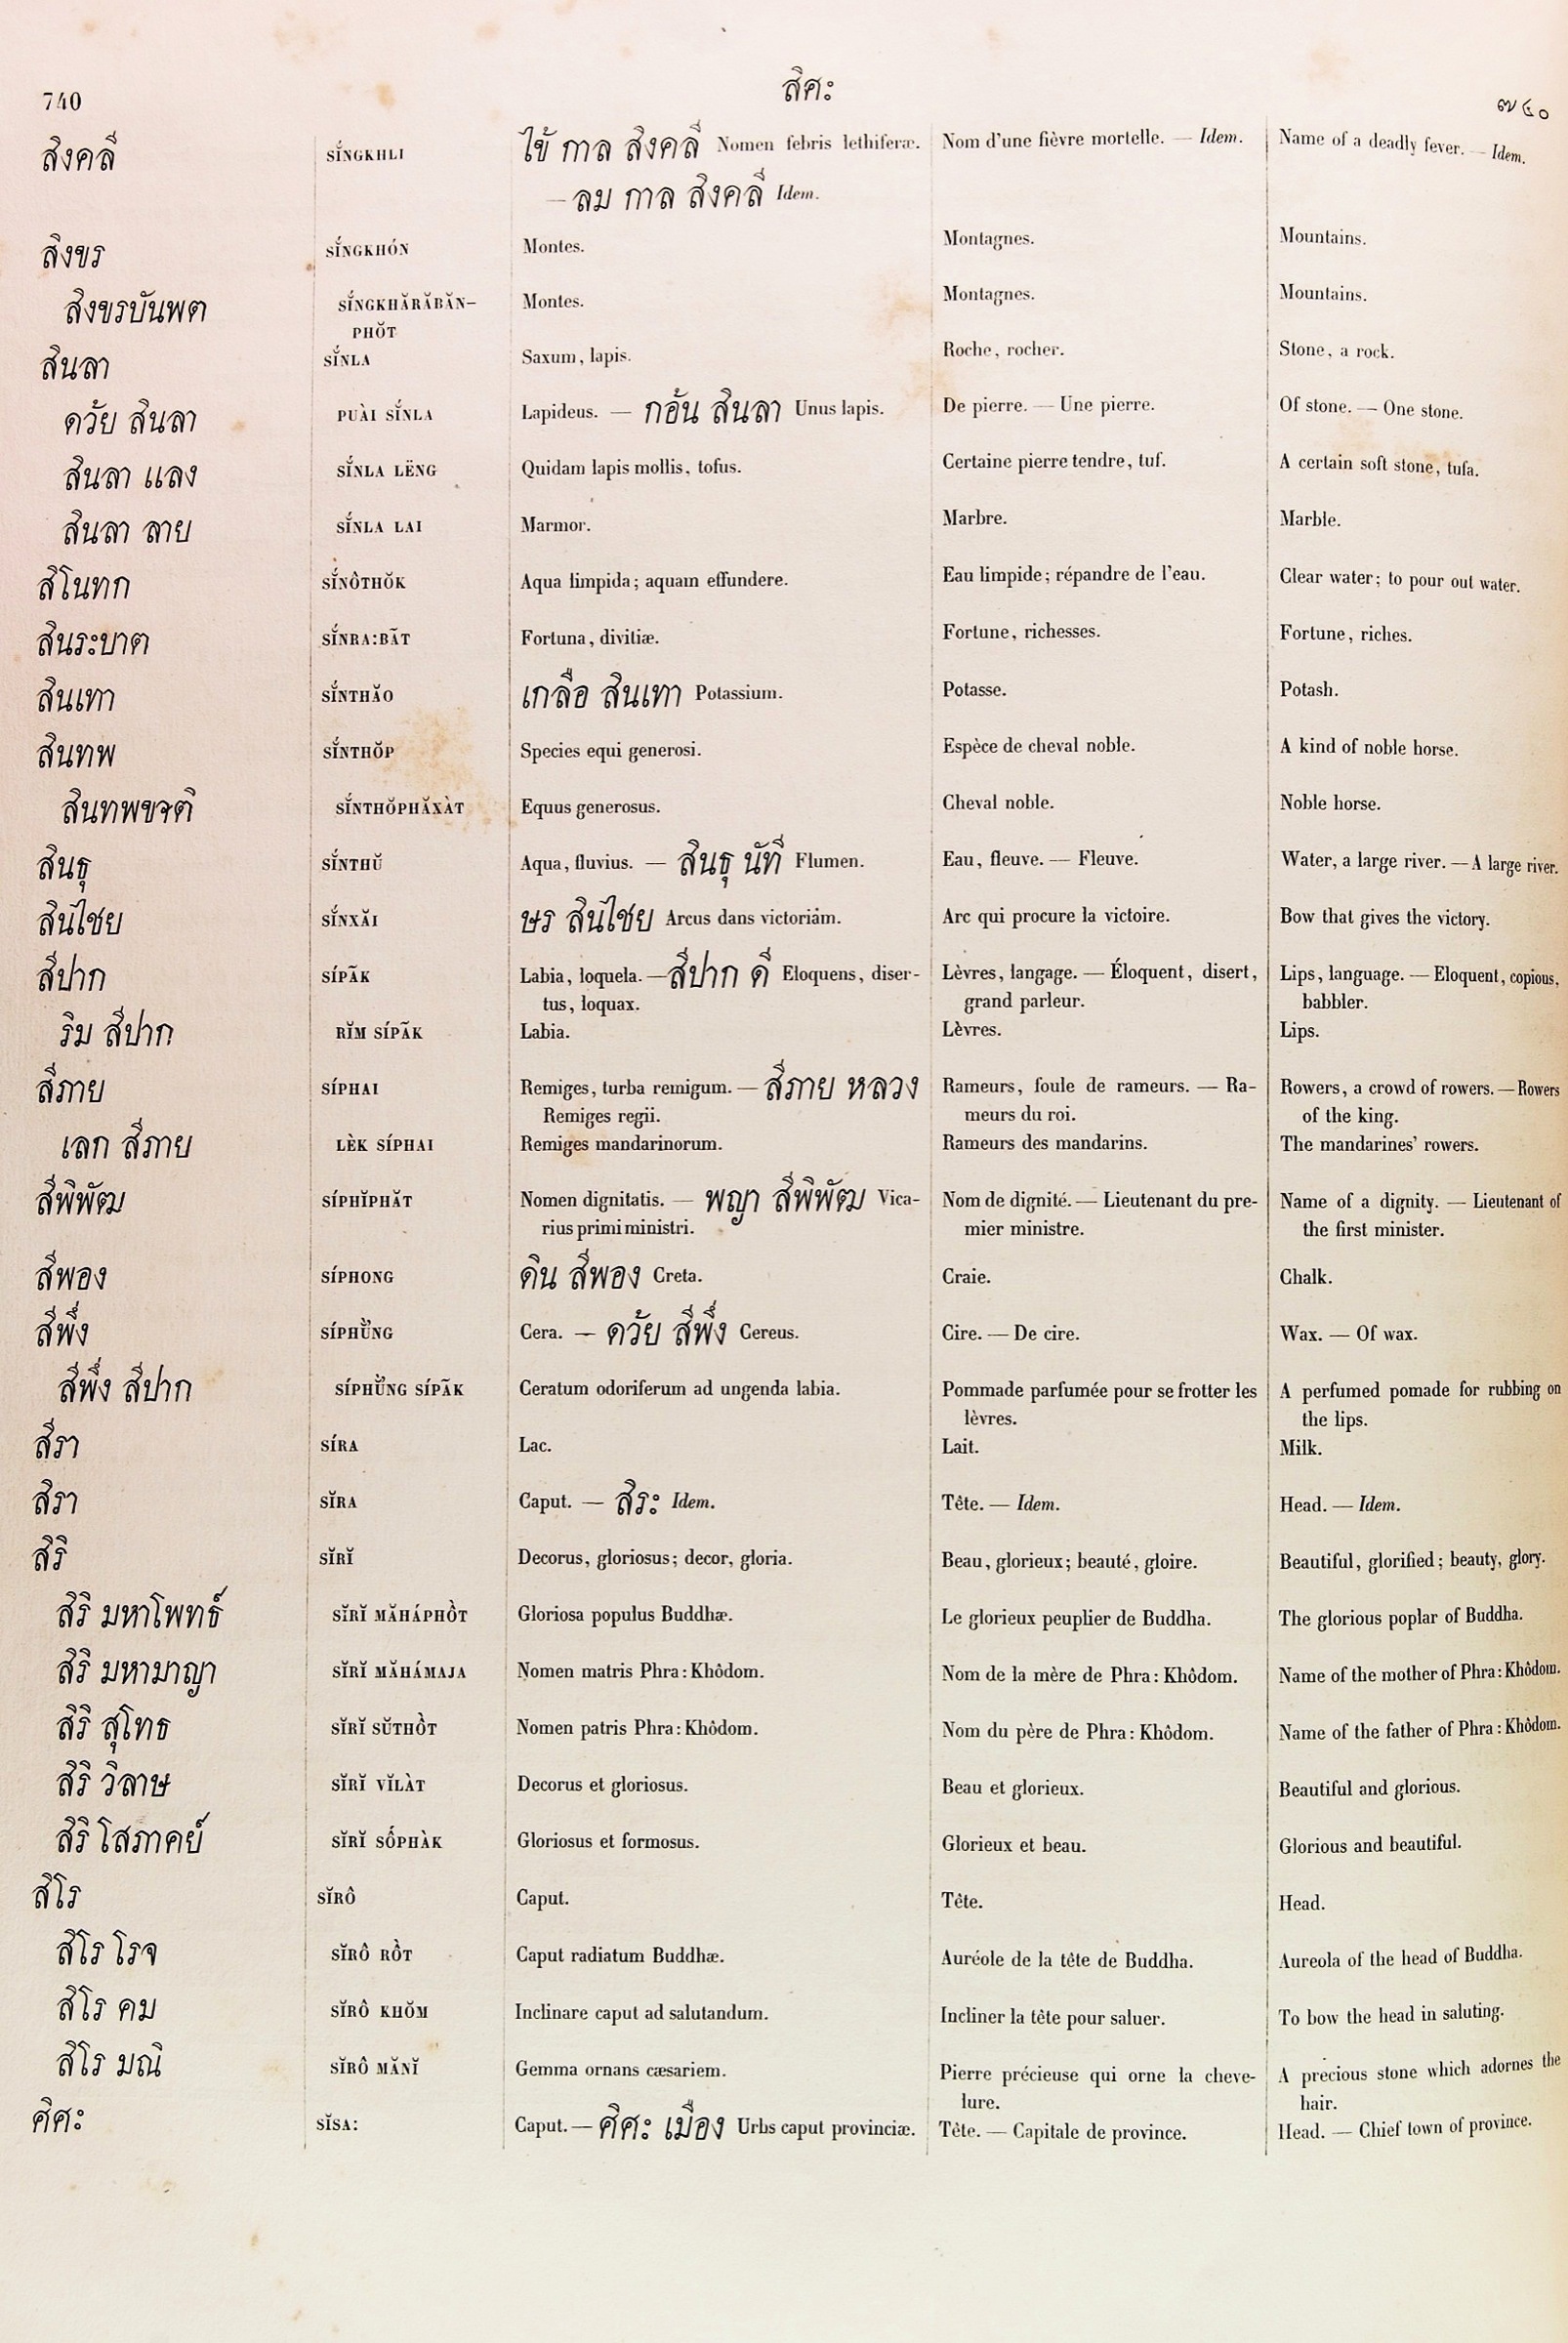 740 สิศะ ๗๔๐
สิงคลี SĬ́NGKHLI ไข้ กาล สิงคลี Nomen febris lethiferæ. Nom d'une fièvre mortelle. — Idem. Name of a deadly fever. — Idem.
— ลม กาล สิงคลี Idem.
สิงขร SĬ́NGKHÓN Montes. Montagnes. Mountains.
สิงขรบันพต SĬ́NGKHĂRĂBĂN- Montes. Montagnes. Mountains.
PHŎT
สินลา SĬ́NLA Saxum, lapis. Roche, rocher. Stone, a rock.
ดว้ย สินลา PUÀI SĬ́NLA Lapideus. — กอ้น สินลา Unus lapis. De pierre. — Une pierre. Of stone. — One stone.
สินลา แลง SĬ́NLA LËNG Quidam lapis mollis, tofus. Certaine pierre tendre, tuf. A certain soft stone, tufa.
สินลา ลาย SĬ́NLA LAI Marmor. Marbre. Marble.
สิโนทก SĬ́NÔTHŎK Aqua limpida; aquam effundere. Eau limpide; répandre de l'eau. Clear water; to pour out water.
สินระบาต SĬ́NRA:BÃT Fortuna, divitiæ. Fortune, richesses. Fortune, riches.
สินเทา SĬ́NTHĂO เกลือ สินเทา Potassium. Potasse. Potash.
สินทพ SĬ́NTHŎP Species equi generosi. Espèce de cheval noble. A kind of noble horse.
สินทพขจติ SĬ́NTHŎPHĂXÀT Equus generosus. Cheval noble. Noble horse.
สินธุ SĬ́NTHŬ Aqua, fluvius. — สินธุ นัที Flumen. Eau, fleuve. — Fleuve. Water, a large river. — A large river.
สินไชย SĬ́NXĂI ษร สินไชย Arcus dans victoriâm. Arc qui procure la victoire. Bow that gives the victory.
สีปาก SÍPÃK Labia, loquela. — สีปาก ดี Eloquens, diser- Lèvres, langage. — Éloquent, disert, Lips, language. — Eloquent, copious,
tus, loquax. grand parleur. babbler.
ริม สีปาก RĬM SÍPÃK Labia. Lèvres. Lips.
สีภาย SÍPHAI Remiges, turba remigum. — สีภาย หลวง Rameurs, foule de rameurs. — Ra- Rowers, a crowd of rowers. — Rowers
Remiges regii. meurs du roi. of the king.
เลก สีภาย LÈK SÍPHAI Remiges mandarinorum. Rameurs des mandarins. The mandarines' rowers.
สีพิพัฒ SÍPHĬPHĂT Nomen dignitatis. — พญา สีพิพัฒ Vica- Nom de dignité. — Lieutenant du pre- Name of a dignity. — Lieutenant of
rius primi ministri. mier ministre. the first minister.
สีพอง SÍPHONG ดิน สีพอง Creta. Craie. Chalk.
สีพึ่ง SÍPHŬ̀NG Cera. — ดว้ย สีพึ่ง Cereus. Cire. — De cire. Wax. — Of wax.
สีพึ่ง สีปาก SÍPHŬ̀NG SÍPÃK Ceratum odoriferum ad ungenda labia. Pommade parfumée pour se frotter les A perfumed pomade for rubbing on
lèvres. the lips.
สีรา SÍRA Lac. Lait. Milk.
สิรา SĬRA Caput. — สิระ Idem. Tête. — Idem. Head. — Idem.
สิริ SĬRĬ Decorus, gloriosus; decor, gloria. Beau, glorieux; beauté, gloire. Beautiful, glorified; beauty, glory.
สิริ มหาโพทธ์ SĬRĬ MĂHÁPHỒT Gloriosa populus Buddhæ. Le glorieux peuplier de Buddha. The glorious poplar of Buddha.
สิริ มหามาญา SĬRĬ MĂHÁMAJA Nomen matris Phra:Khôdom. Nom de la mère de Phra:Khôdom. Name of the mother of Phra:Khôdom.
สิริ สุโทธ SĬRĬ SŬTHỒT Nomen patris Phra:Khôdom. Nom du père de Phra:Khôdom. Name of the father of Phra:Khôdom.
สิริ วิลาษ SĬRĬ VĬLÀT Decorus et gloriosus. Beau et glorieux. Beautiful and glorious.
สิริ โสภาคย์ SĬRĬ SỐPHÀK Gloriosus et formosus. Glorieux et beau. Glorious and beautiful.
สิโร SĬRÔ Caput. Tête. Head.
สิโร โรจ SĬRÔ RỒT Caput radiatum Buddhæ. Auréole de la tête de Buddha. Aureola of the head of Buddha.
สิโร คม SĬRÔ KHŎM Inclinare caput ad salutandum. Incliner la tête pour saluer. To bow the head in saluting.
สิโร มณิ SĬRÔ MĂNĬ Gemma ornans cæsariem. Pierre précieuse qui orne la cheve- A precious stone which adornes the
lure. hair.
ศิศะ SĬSA: Caput. — ศิศะ เมือง Urbs caput provinciæ. Tête. — Capitale de province. Head. — Chief town of province.